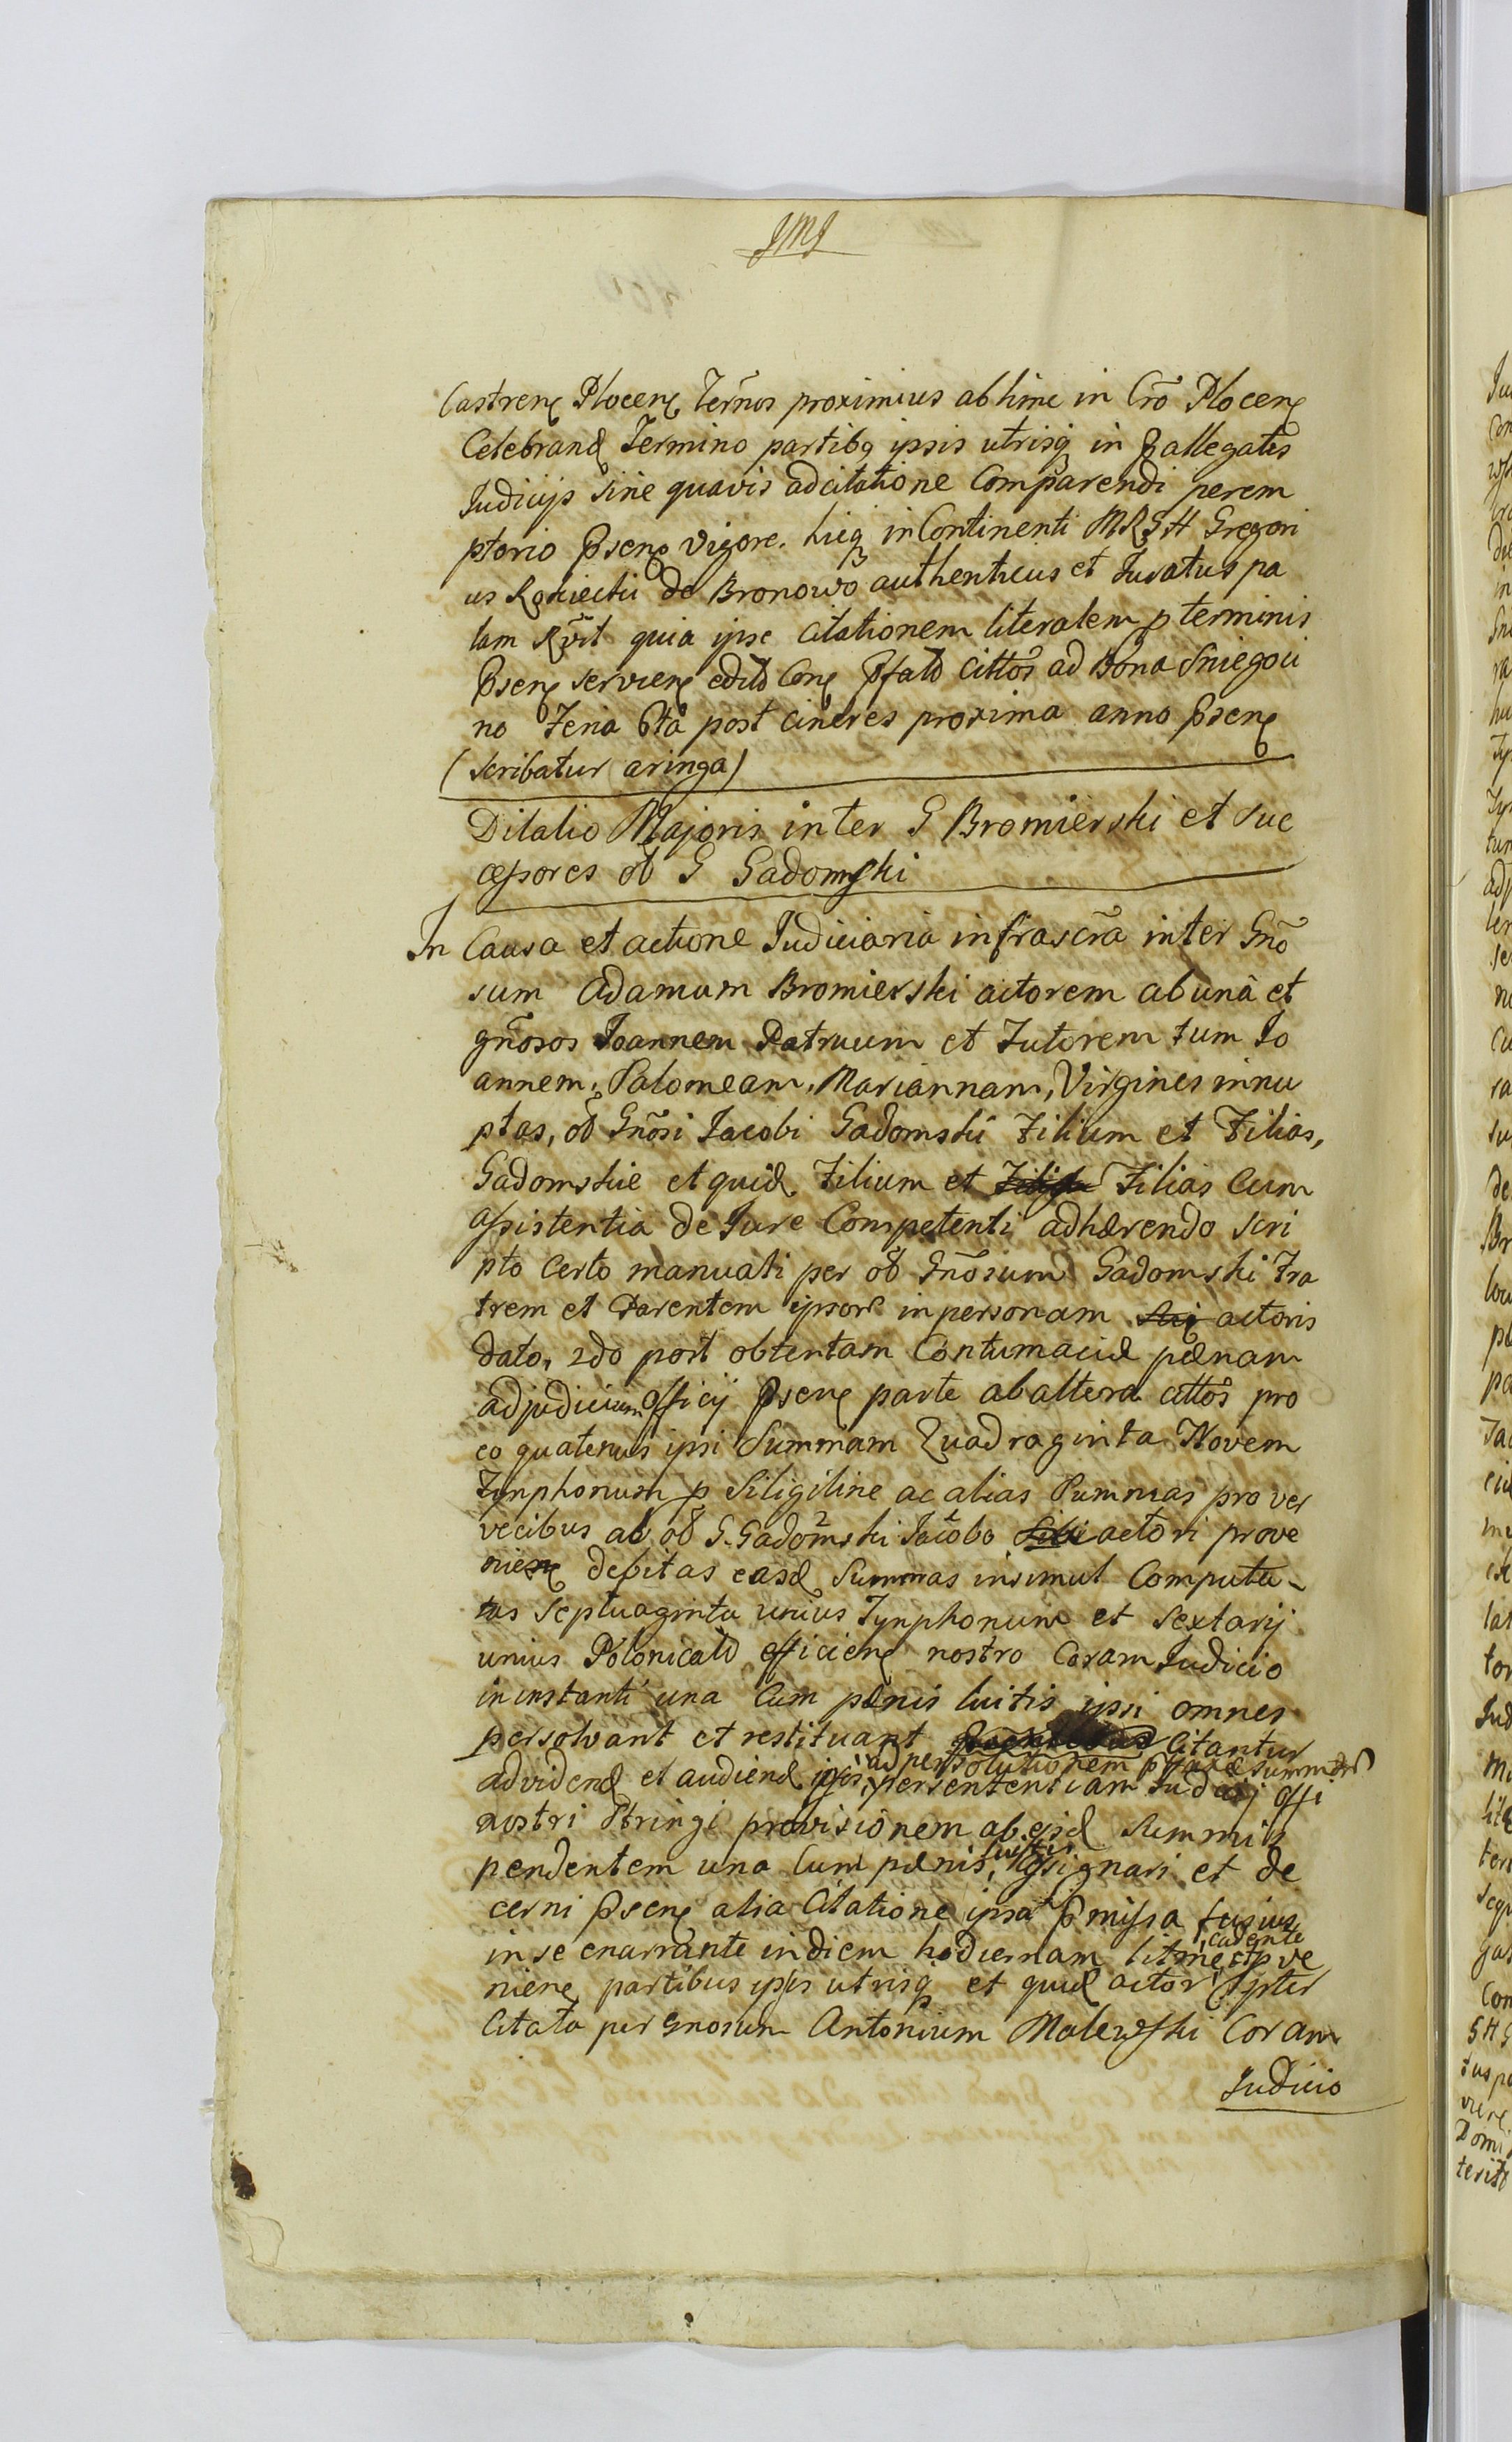 JMJ
Castrenę Plocenę Terños proximius abhinc in Crõ Plocenę
Celebrand Termino partibq ipsis utrisq in Pallegatis
Judicijs sine quavis adcitatione Comparendi perem
ptorio Psenę vigore. hicq in Continenti MRGH Gregori
us de Bronowo authenticus et Juratus pa
lam quia ipse Citationem literalem p terminis
Psenę servienę Conę Pfato Cittos ad Bona Sniegoci
no Feria 6ta post cineres proxima anno Psenę
(scribatur aringa)
Dilatio Majoris inter G Bromierski et Suc
cessores ob G Gadomski
In Causa et actione Judiciaria infrascrã inter Gnõ
sum Adamum Bromierski actorem ab unâ et
gñosos Joannem Patruum et Tutorem tum Jo
annem, Salomeam, Mariannam, Virgines innu
ptas, ob Gñosi Jacobi Gadomski Filium et Filias,
Gadomskie et quid Filium et Filias Cum
assistentia de Jure Competenti adhærendo scri
pto Certo manuali per ob Gñosum Gadomski Fra
trem et Parentem ipsor in personam actoris
dato, 2do post obtentam Contumaciæ pænam
adjudicium Officij Psenę parte ab altera cittos pro
eo quatenus ipsi Summam Quadraginta Novem
Tynphonum p Siligine ac alias Summas pro ver
vecibus ab ob G. Gadomski Jacobo Sibi actori prove
nienę debitas easd Summas insimul Computa
tas septuaginta unius Tynphonum et Sextarij
unius Polonicalo efficienę nostro Coram Judicio
in instanti una Cum pænis luitis ipsi omnes
persolvant et restituant Citantur
ad vidend et audiend ipsis, ad persolutionem summar
per sententiam Judicij offi
nostri Stringi provisionem ab ejsd Summis
pendentem una Cum pænis, luitis assignari et de
cerni Psenę alia Citatione ipsa Pmissa fusius
in se enarrante in diem hodiernam cadente
nienę partibus ipsis utrisq et quid actor
Citato per Gnosum Antonium Malewski Coram
Judicio